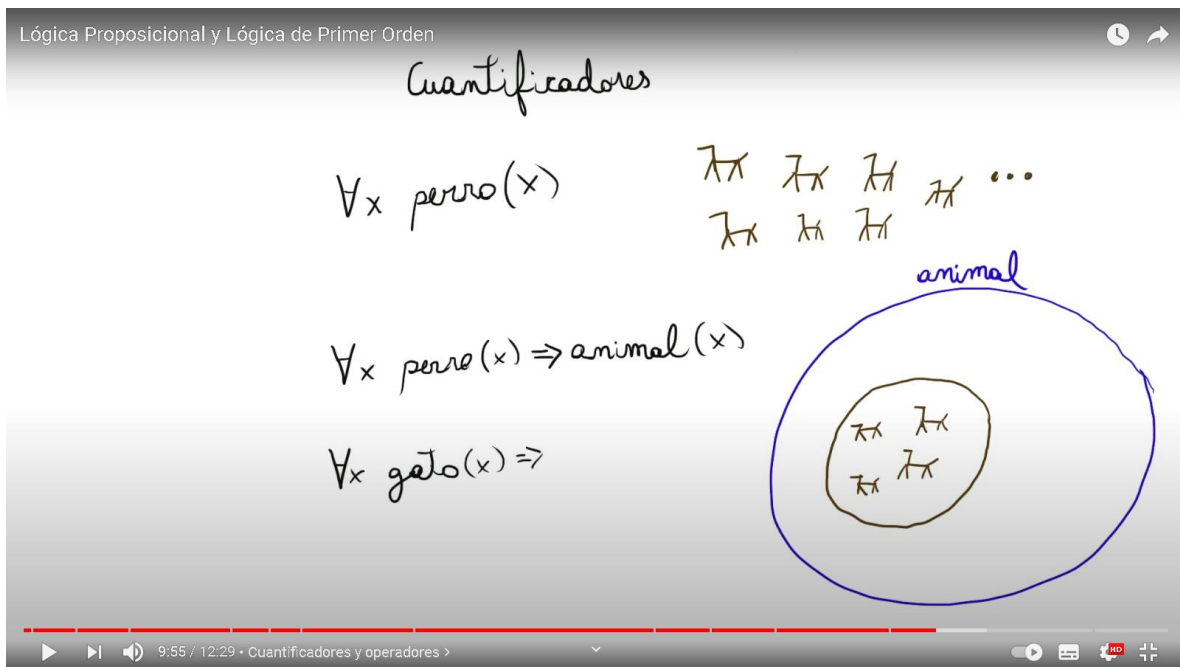 Lógica Proposicional y Lógica de Primer Orden
Cuantificadores
∀x perro(x)
...
animal
∀x perro(x) ⇒ animal(x)
∀x gato(x) ⇒
9:55 / 12:29 • Cuantificadores y operadores >
HD